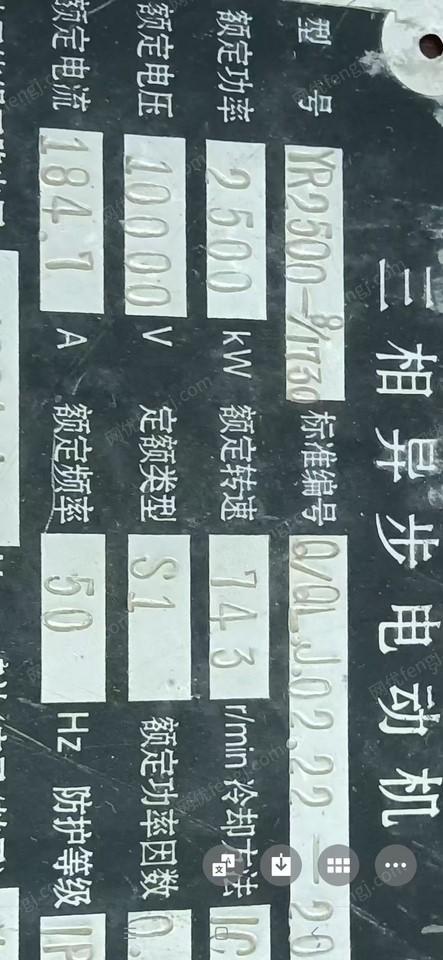 三相异步电动机
型号 YR2500-8/1730 标准编号 Q/QLJ02.22-20
额定功率 2500 kW 额定转速 743 r/min 冷却方法 IC
额定电压 10000 V 定额类型 S1 额定功率因数 0.
额定电流 184.7 A 额定频率 50 Hz 防护等级 IP